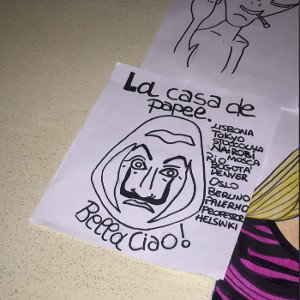 La casa de
papee.
LISBONA
TOKYO
STOCCOLMA
NAIROBI
MOSCA
RIO
BOGOTA'
DENVER
OSLO
BERLINO
PALERMO
PROFESSOR
HELSINKI
Bella Ciao!